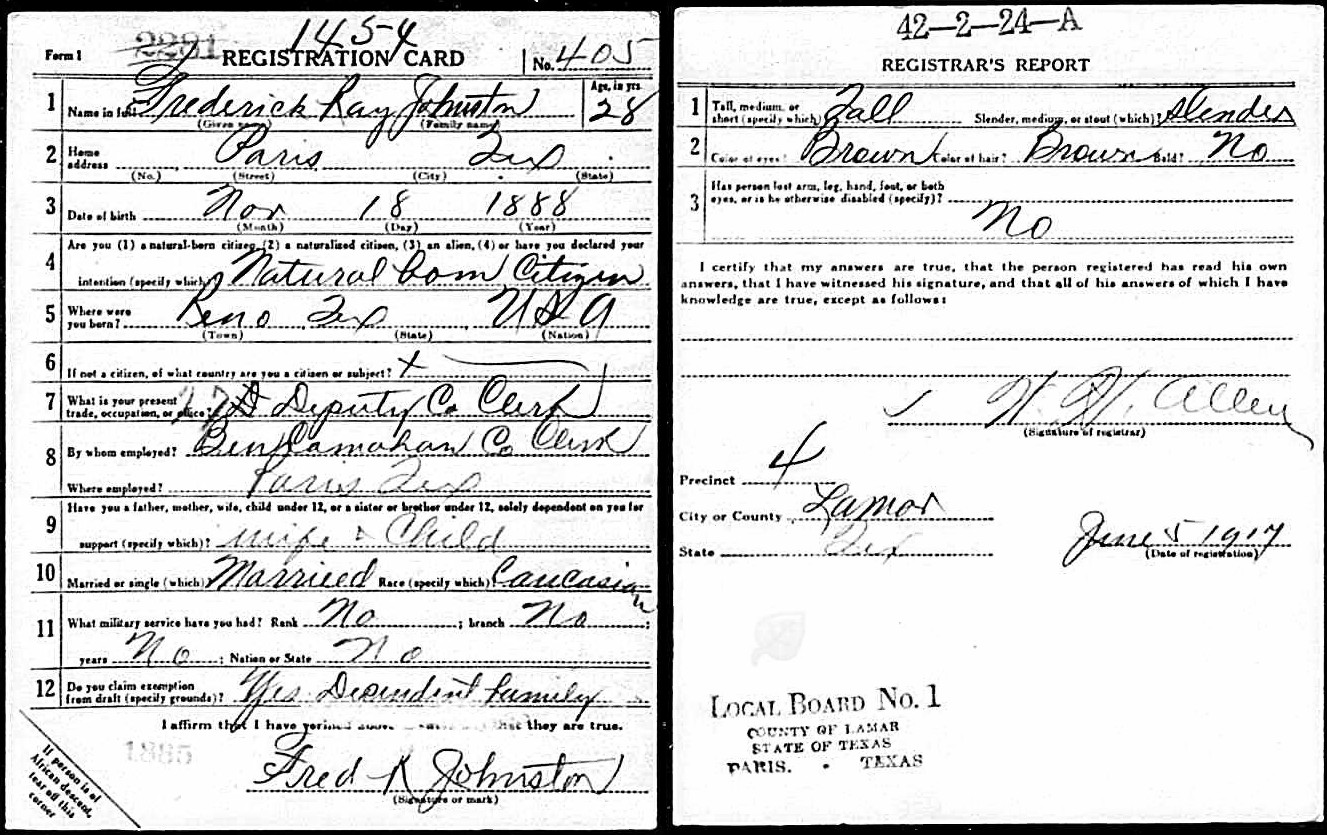 1454
Form 1 2291 REGISTRATION CARD No. 405
1 Name in full Frederick Ray Johnston Age, in yrs. 28
(Given name) (Family name)
2 Home address Paris Tex
(No.) (Street) (City) (State)
3 Date of birth Nov 18 1888
(Month) (Day) (Year)
Are you (1) a natural-born citizen, (2) a naturalized citizen, (3) an alien, (4) or have you declared your
4 intention (specify which)? Natural born Citizen
5 Where were you born? Reno Tex U S A
(Town) (State) (Nation)
6 If not a citizen, of what country are you a citizen or subject? x
7 What is your present trade, occupation, or office? Deputy Co Clerk
8 By whom employed? Ben Co Clerk
Where employed? Paris Tex
Have you a father, mother, wife, child under 12, or a sister or brother under 12, solely dependent on you for
9 support (specify which)? wife & Child
10 Married or single (which)? Married Race (specify which)? Caucasian
11 What military service have you had? Rank No ; branch No ;
years No ; Nation or State No
12 Do you claim exemption from draft (specify grounds)? Yes Dependent family
I affirm that I have verified above that they are true.
1885
Fred R Johnston
(Signature or mark)
If person is of
African descent,
tear off this
corner
42-2-24-A
REGISTRAR'S REPORT
1 Tall, medium, or short (specify which)? Tall Slender, medium, or stout (which)? Slender
2 Color of eyes? Brown Color of hair? Brown Bald? No
Has person lost arm, leg, hand, foot, or both
3 eyes, or is he otherwise disabled (specify)?
No
I certify that my answers are true, that the person registered has read his own
answers, that I have witnessed his signature, and that all of his answers of which I have
knowledge are true, except as follows:
W. W. Allen
(Signature of registrar)
Precinct 4
City or County Lamar
State Tex
June 5 1917
(Date of registration)
LOCAL BOARD No. 1
COUNTY OF LAMAR
STATE OF TEXAS
PARIS. TEXAS